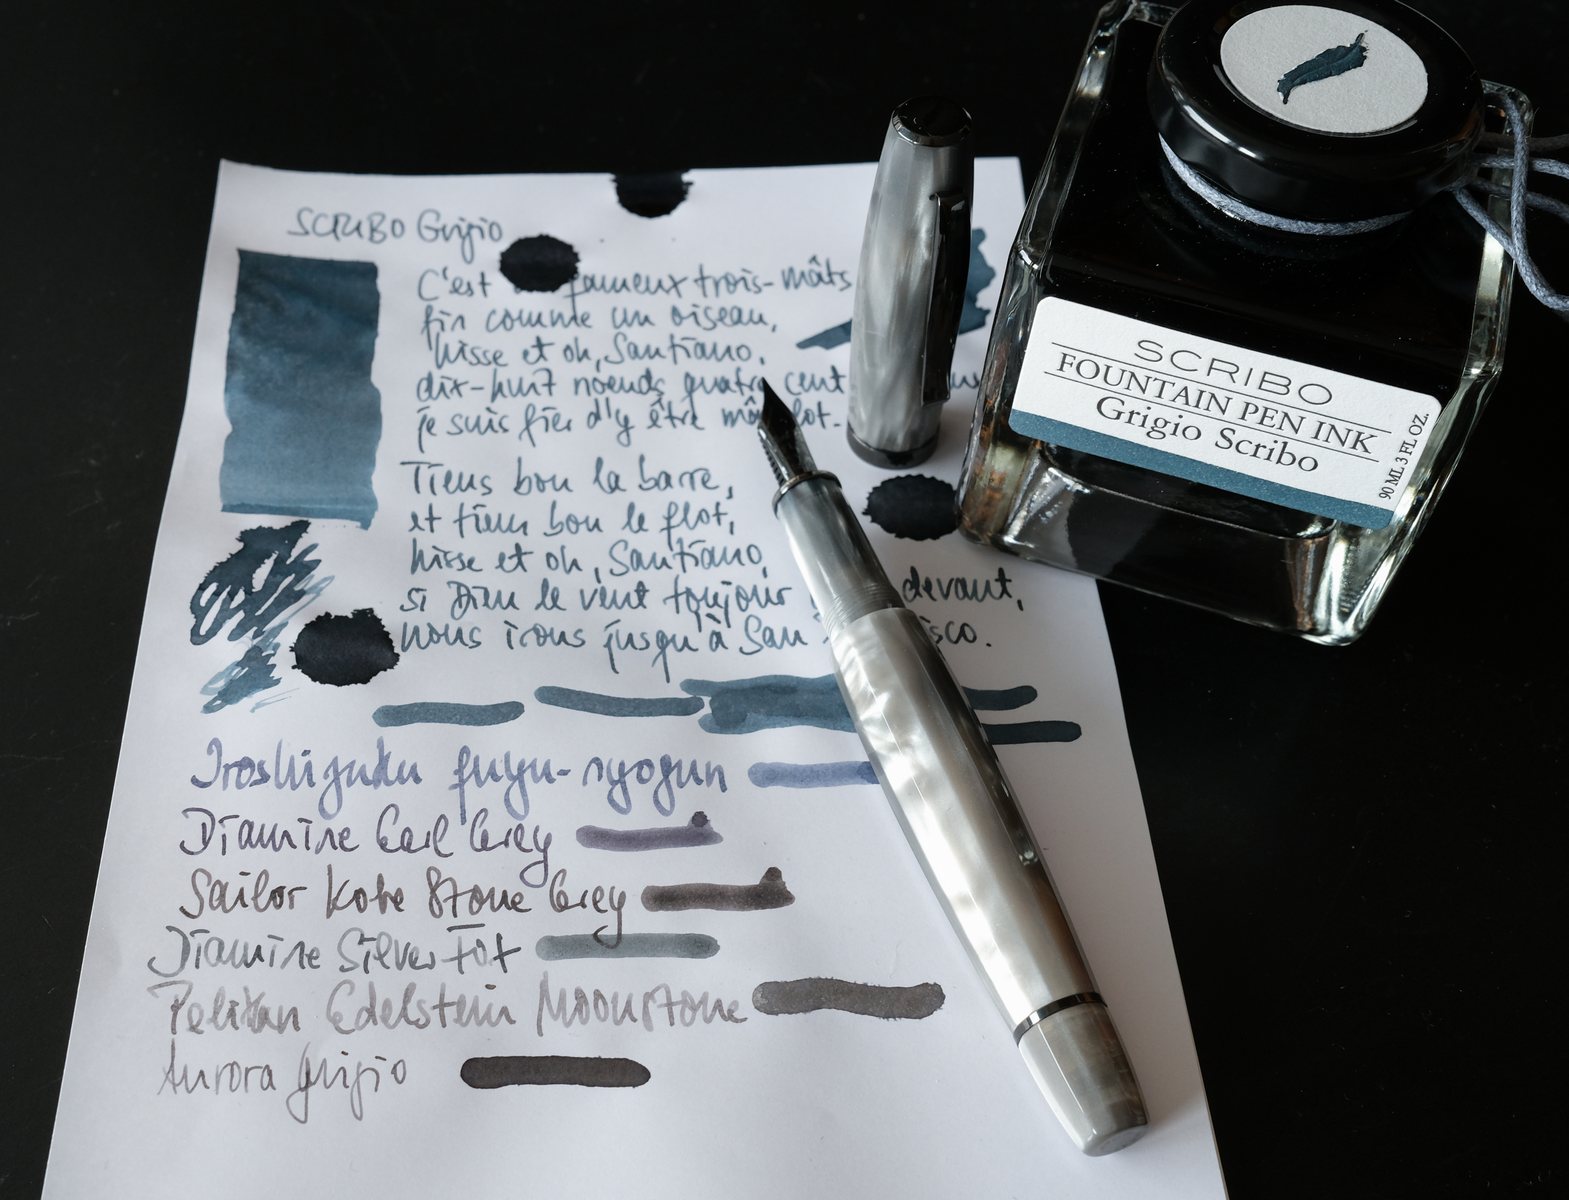 SCRIBO Grigio
C'est fameux trois-mâts
fin comme un oiseau,
hisse et oh, Santiano,
dix-huit nœuds, quatre cent
je suis fier d'y être lot.
Tiens bon la barre,
et tiens bon le flot,
hisse et oh, Santiano,
si Dieu le veut toujour devant,
nous irons jusqu'à San isco.
Iroshizuku fuyu-syogun
Diamine Earl Grey
Sailor Kobe Stone Grey
Diamine Silver Fox
Pelikan Edelstein Moonstone
Aurora Grigio
SCRIBO
FOUNTAIN PEN INK
Grigio Scribo
90 ML 3 FL OZ.